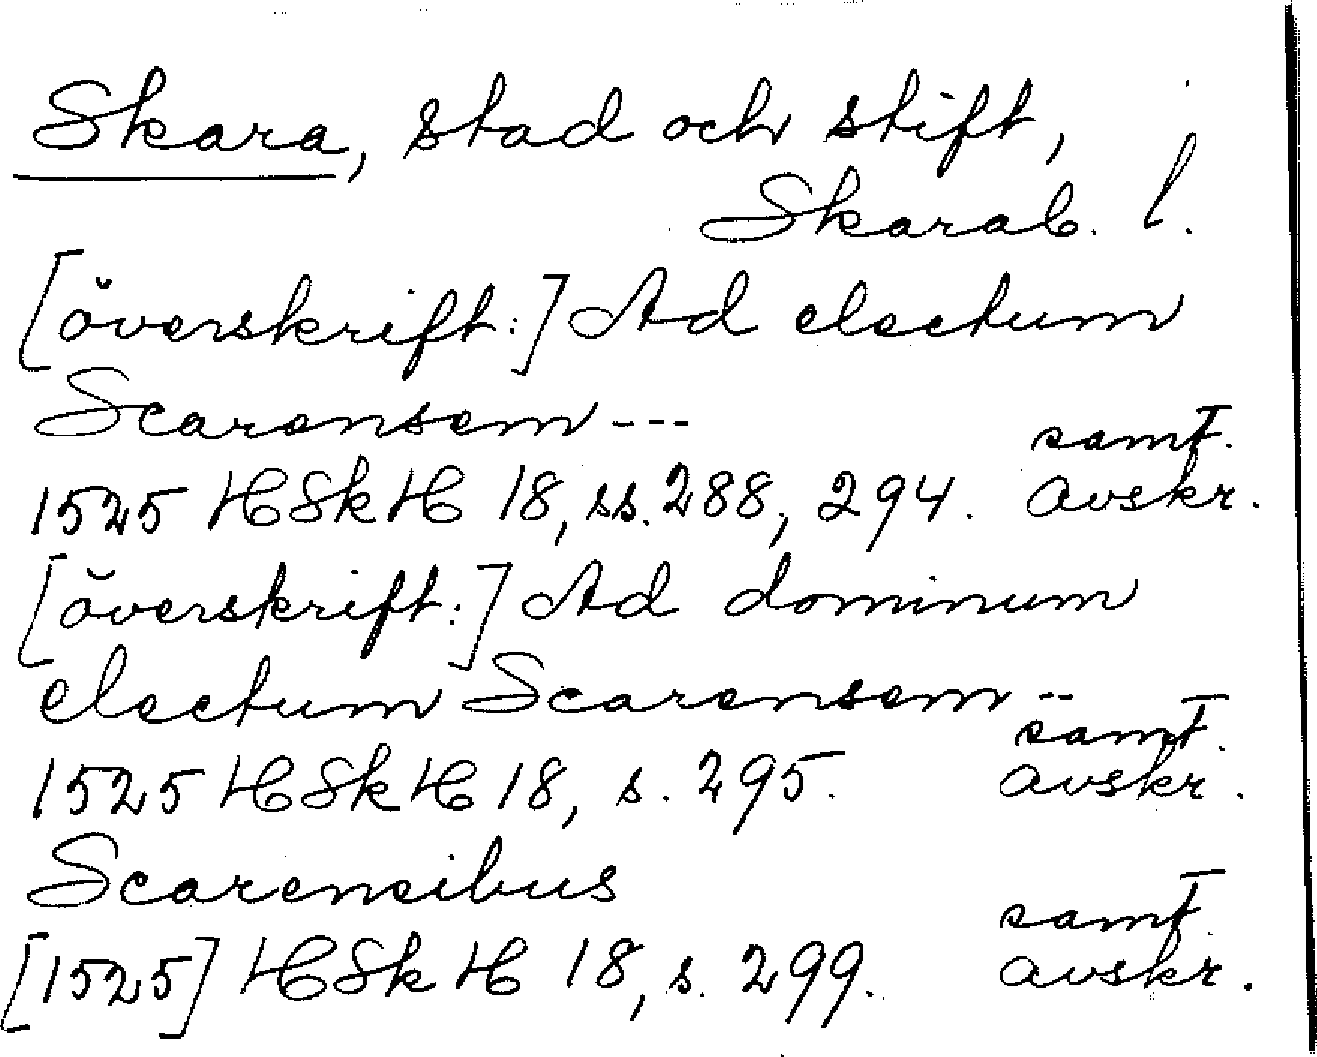 Skara, stad och stift,
Skarab. l.
[överskrift:] Ad electum
Scarensem ---
samt.
1525 HSkH 18, ss. 288, 294. avskr.
[överskrift:] Ad dominum
electum Scarensem --
samt.
1525 HSkH 18, s. 295. avskr.
Scarensibus
samt.
[1525] HSkH 18, s. 299. avskr.